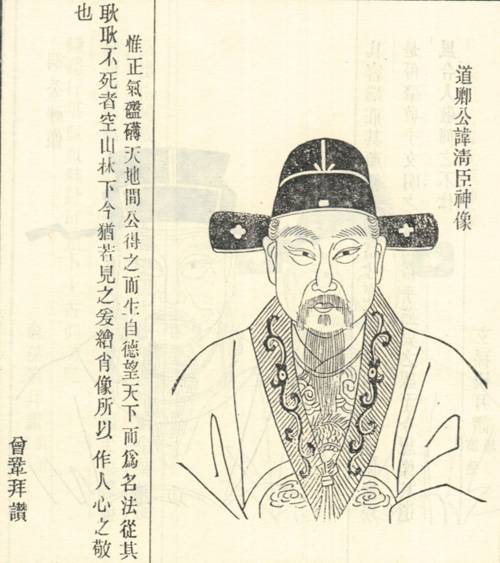 道卿公諱淸臣神像
惟正氣礴天地間公得之而生自德望天下而爲名法從其
耿耿不死者空山林下今猶若見之爰繪肖像所以作人心之敬
也
曾鞏拜讚